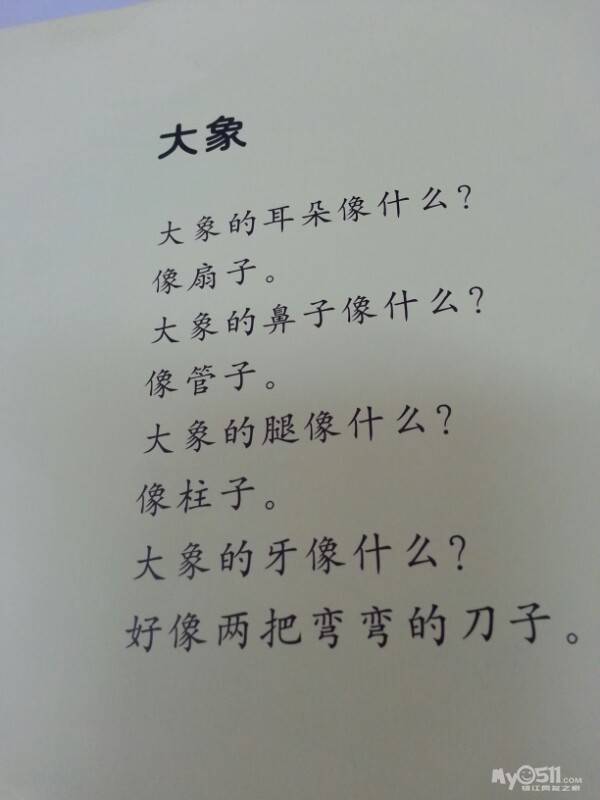 大象
大象的耳朵像什么？
像扇子。
大象的鼻子像什么？
像管子。
大象的腿像什么？
像柱子。
大象的牙像什么？
好像两把弯弯的刀子。
My0511.COM
镇江网友之家